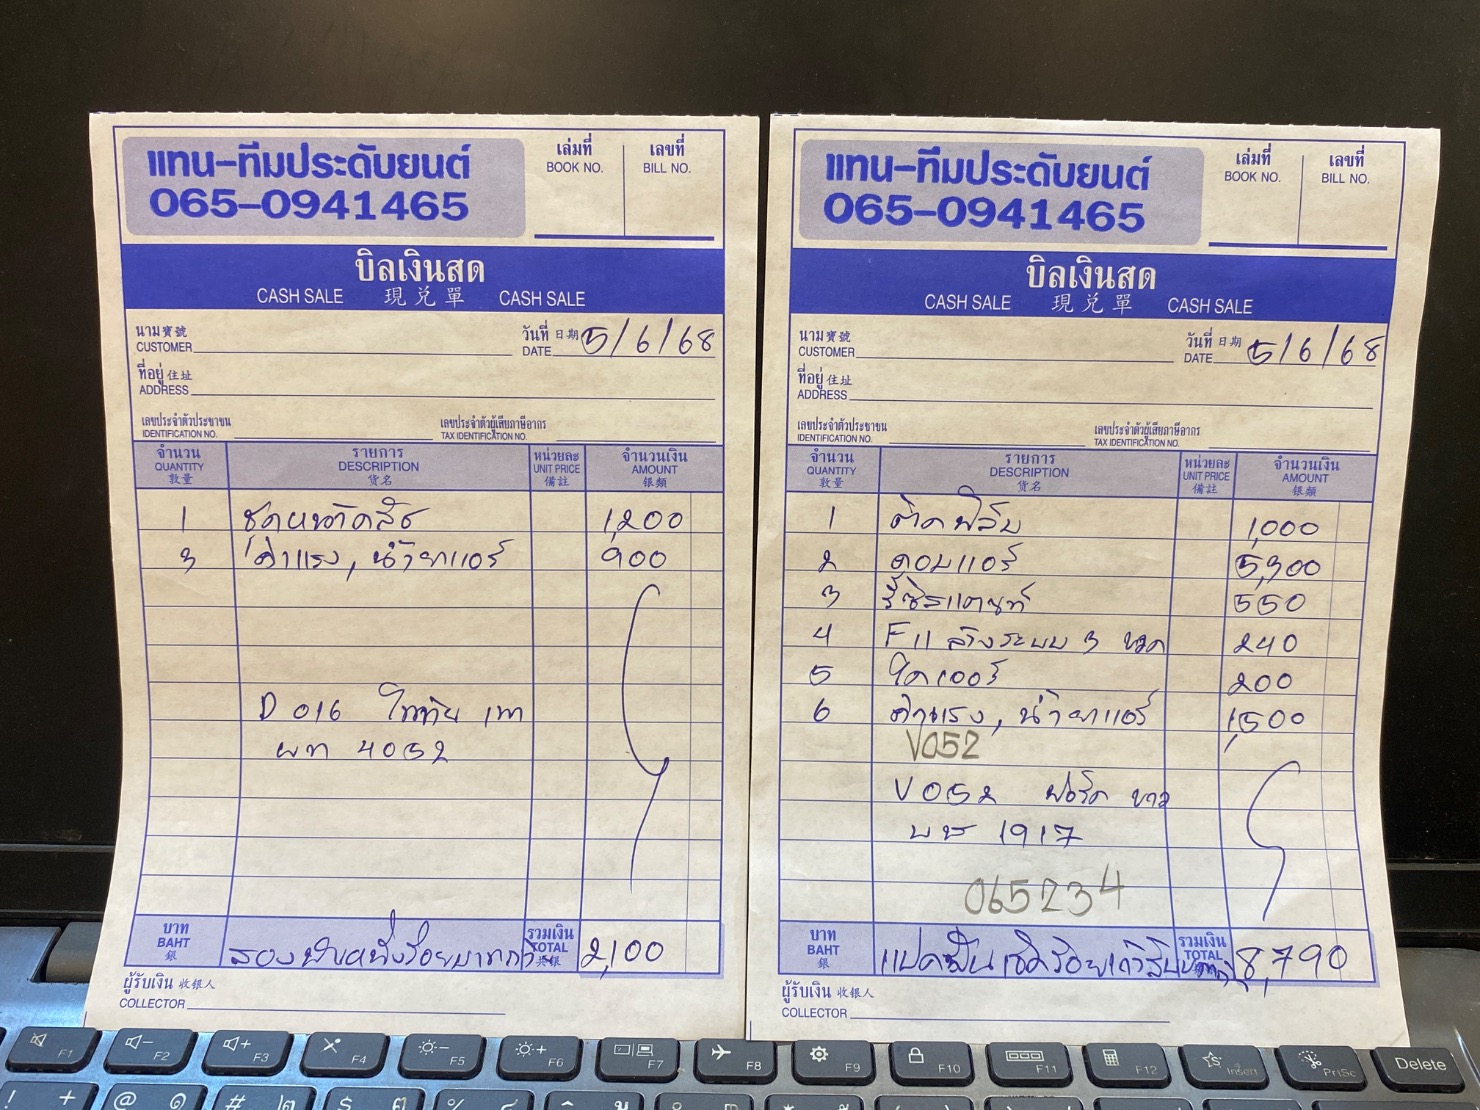 แทน-ทีมประดับยนต์
065-0941465
เล่มที่
BOOK NO.
เลขที่
BILL NO.
บิลเงินสด
CASH SALE 現兌單 CASH SALE
นาม寶號
CUSTOMER
วันที่ 日期
DATE 5/6/68
ที่อยู่ 住址
ADDRESS
เลขประจำตัวประชาชน
IDENTIFICATION NO.
เลขประจำตัวผู้เสียภาษีอากร
TAX IDENTIFICATION NO.
จำนวน
QUANTITY
數量
รายการ
DESCRIPTION
貨名
หน่วยละ
UNIT PRICE
備註
จำนวนเงิน
AMOUNT
银額
1 ชุดหน้าคลัช 1,200
3 ค่าแรง, น้ำยาแอร์ 900
D 016 ไททัน เทา
ผท 4052
บาท
BAHT
銀
สองพันหนึ่งร้อยบาทถ้วน
รวมเงิน
TOTAL
共銀
2,100
ผู้รับเงิน 收银人
COLLECTOR
แทน-ทีมประดับยนต์
065-0941465
เล่มที่
BOOK NO.
เลขที่
BILL NO.
บิลเงินสด
CASH SALE 現兌單 CASH SALE
นาม寶號
CUSTOMER
วันที่ 日期
DATE 5/6/68
ที่อยู่ 住址
ADDRESS
เลขประจำตัวประชาชน
IDENTIFICATION NO.
เลขประจำตัวผู้เสียภาษีอากร
TAX IDENTIFICATION NO.
จำนวน
QUANTITY
數量
รายการ
DESCRIPTION
貨名
หน่วยละ
UNIT PRICE
備註
จำนวนเงิน
AMOUNT
银額
1 1,000
2 คอมแอร์ 5,300
3 รีซิสแตนท์ 550
4 F11 ล้างระบบ 3 ขวด 240
5 ไดเออร์ 200
6 ค่าแรง, น้ำยาแอร์ 1,500
V052
V 052 ฟอร์ด ขาว
บษ 1917
065234
บาท
BAHT
銀
แปดพันเจ็ดร้อยเก้าสิบบาท
รวมเงิน
TOTAL
8,790
ผู้รับเงิน 收银人
COLLECTOR
F1 F2 F3 F4 F5 F6 F7 F8 F9 F10 F11 F12 Insert PrtSc Delete